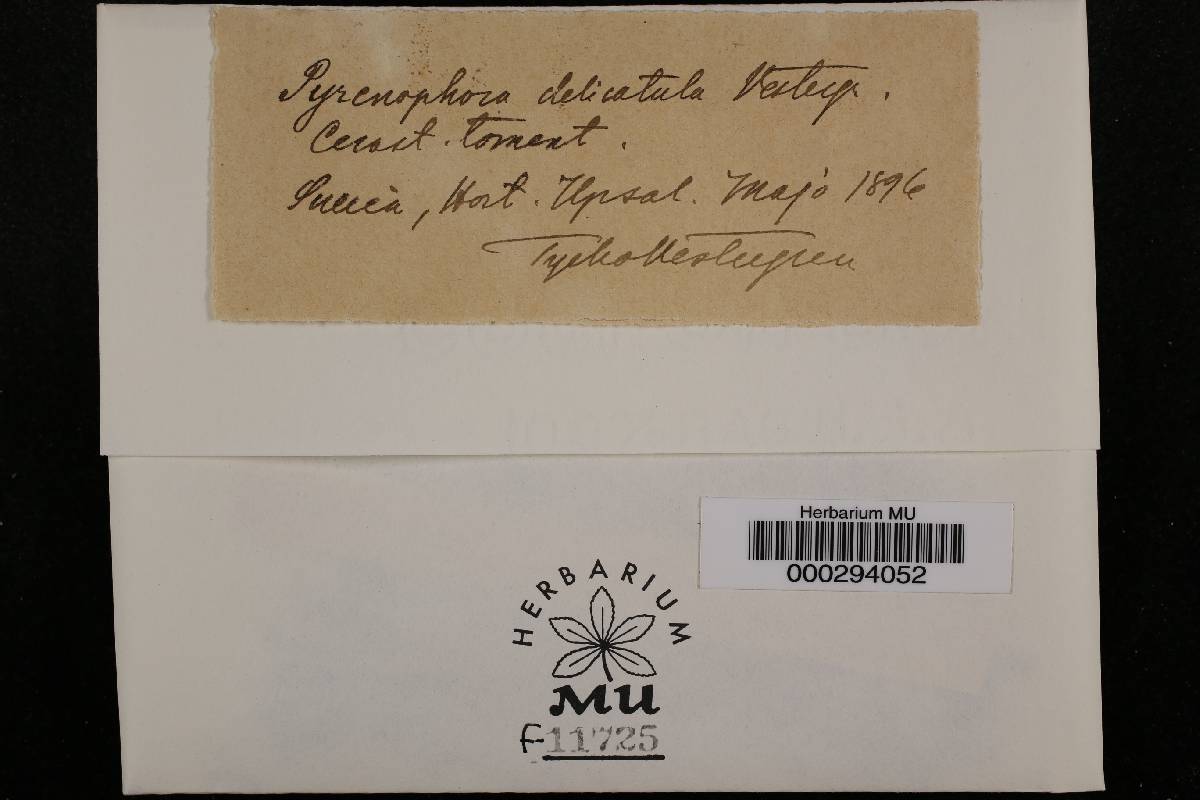 Pyrenophora delicatula Vestergr.
Cerast. toment.
Suecia, Hort. Upsal. Majo 1896
Tycho Vestergren
Herbarium MU
000294052
HERBARIUM
MU
F-11725